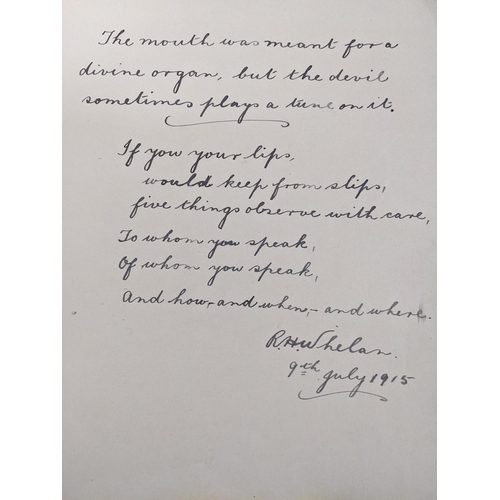 The mouth was meant for a
divine organ, but the devil
sometimes plays a tune on it.
If you your lips,
would keep from slips,
five things observe with care,
To whom you speak,
Of whom you speak,
And how,- and when,- and where.
R.H.Whelan.
9th July 1915